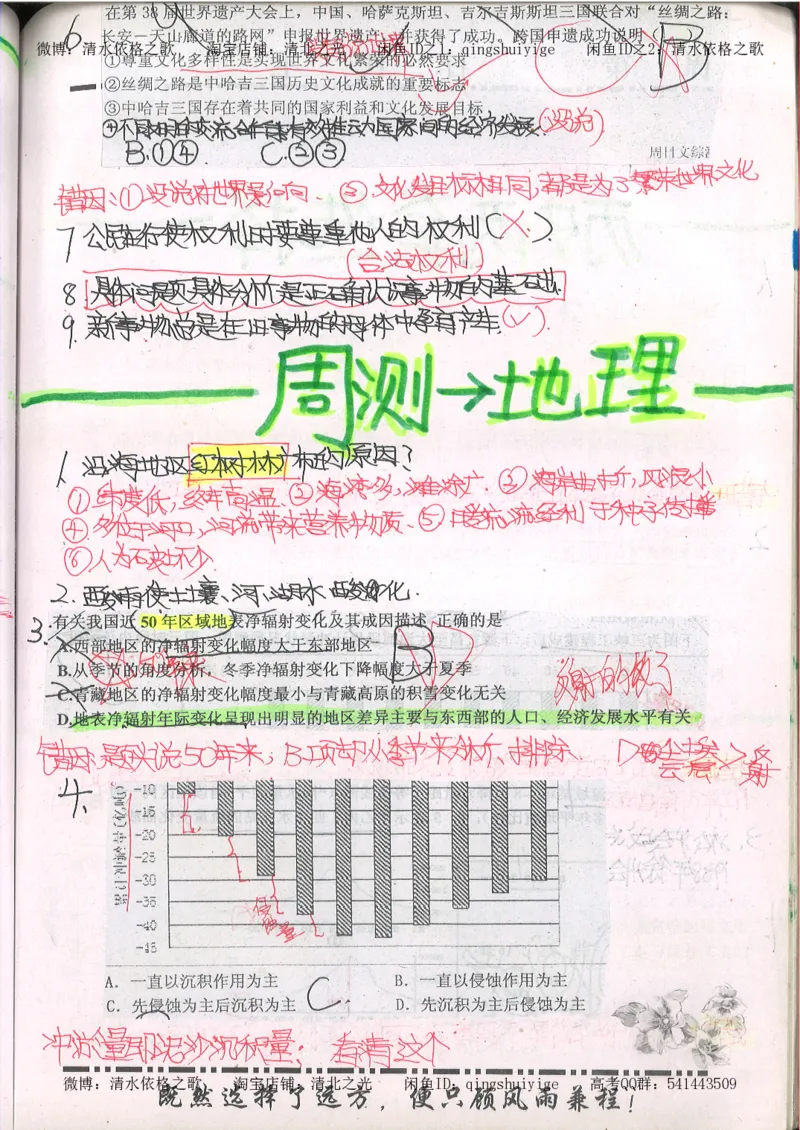 在第38届世界遗产大会上，中国、哈萨克斯坦、吉尔吉斯斯坦三国联合对“丝绸之路：
6 长安—天山廊道的路网”申报世界遗产，并获得了成功。跨国申遗成功说明
微博：清水依格之歌 淘宝店铺：清北之光 闲鱼ID之1：qingshuiyige 闲鱼ID之2：清水依格之歌
①尊重文化多样性是实现世界文化繁荣的必然要求
B
②丝绸之路是中哈吉三国历史文化成就的重要标志
③中哈吉三国存在着共同的国家利益和文化发展目标
④不同国家的交流合作能有效推动国际间的经济发展(没说)
B.①④ C.②③
周日文综
错因：①没说对世界影响. ③文化发展目标相同，都是为了繁荣世界文化
7 公民在行使权利时要尊重他人的权利(×).
(合法权利)
8. 具体问题具体分析是正确认识事物的基础.
9. 新事物总是在旧事物的母体中孕育产生(√).
周测→地理
1、沿海地区红树林广布的原因？
①纬度低，终年高温. ②海湾多，滩涂广. ③海岸曲折，风浪小
④多位于河口，河流带来营养物质. ⑤.受洋流经利于种子传播
⑥人为破坏少.
2. 酸雨使土壤、河湖水酸化.
3. 有关我国近50年区域地表净辐射变化及其成因描述，正确的是
A.西部地区的净辐射变化幅度大于东部地区
B
B.从季节的角度分析，冬季净辐射变化下降幅度大于夏季
C.青藏地区的净辐射变化幅度最小与青藏高原的积雪变化无关
D.地表净辐射年际变化呈现出明显的地区差异主要与东西部的人口、经济发展水平有关
错因：是我说50年来，B项却从季节来分析、排除
4、
-10
-15
-20
-25
-30
-35
-40
-45
A．一直以沉积作用为主 B．一直以侵蚀作用为主
C．先侵蚀为主后沉积为主 C. D．先沉积为主后侵蚀为主
冲淤量即泥沙沉积量；看清这个
微博：清水依格之歌， 淘宝店铺：清北之光 闲鱼ID：qingshuiyige 高考QQ群：541443509
既然选择了远方，便只顾风雨兼程！